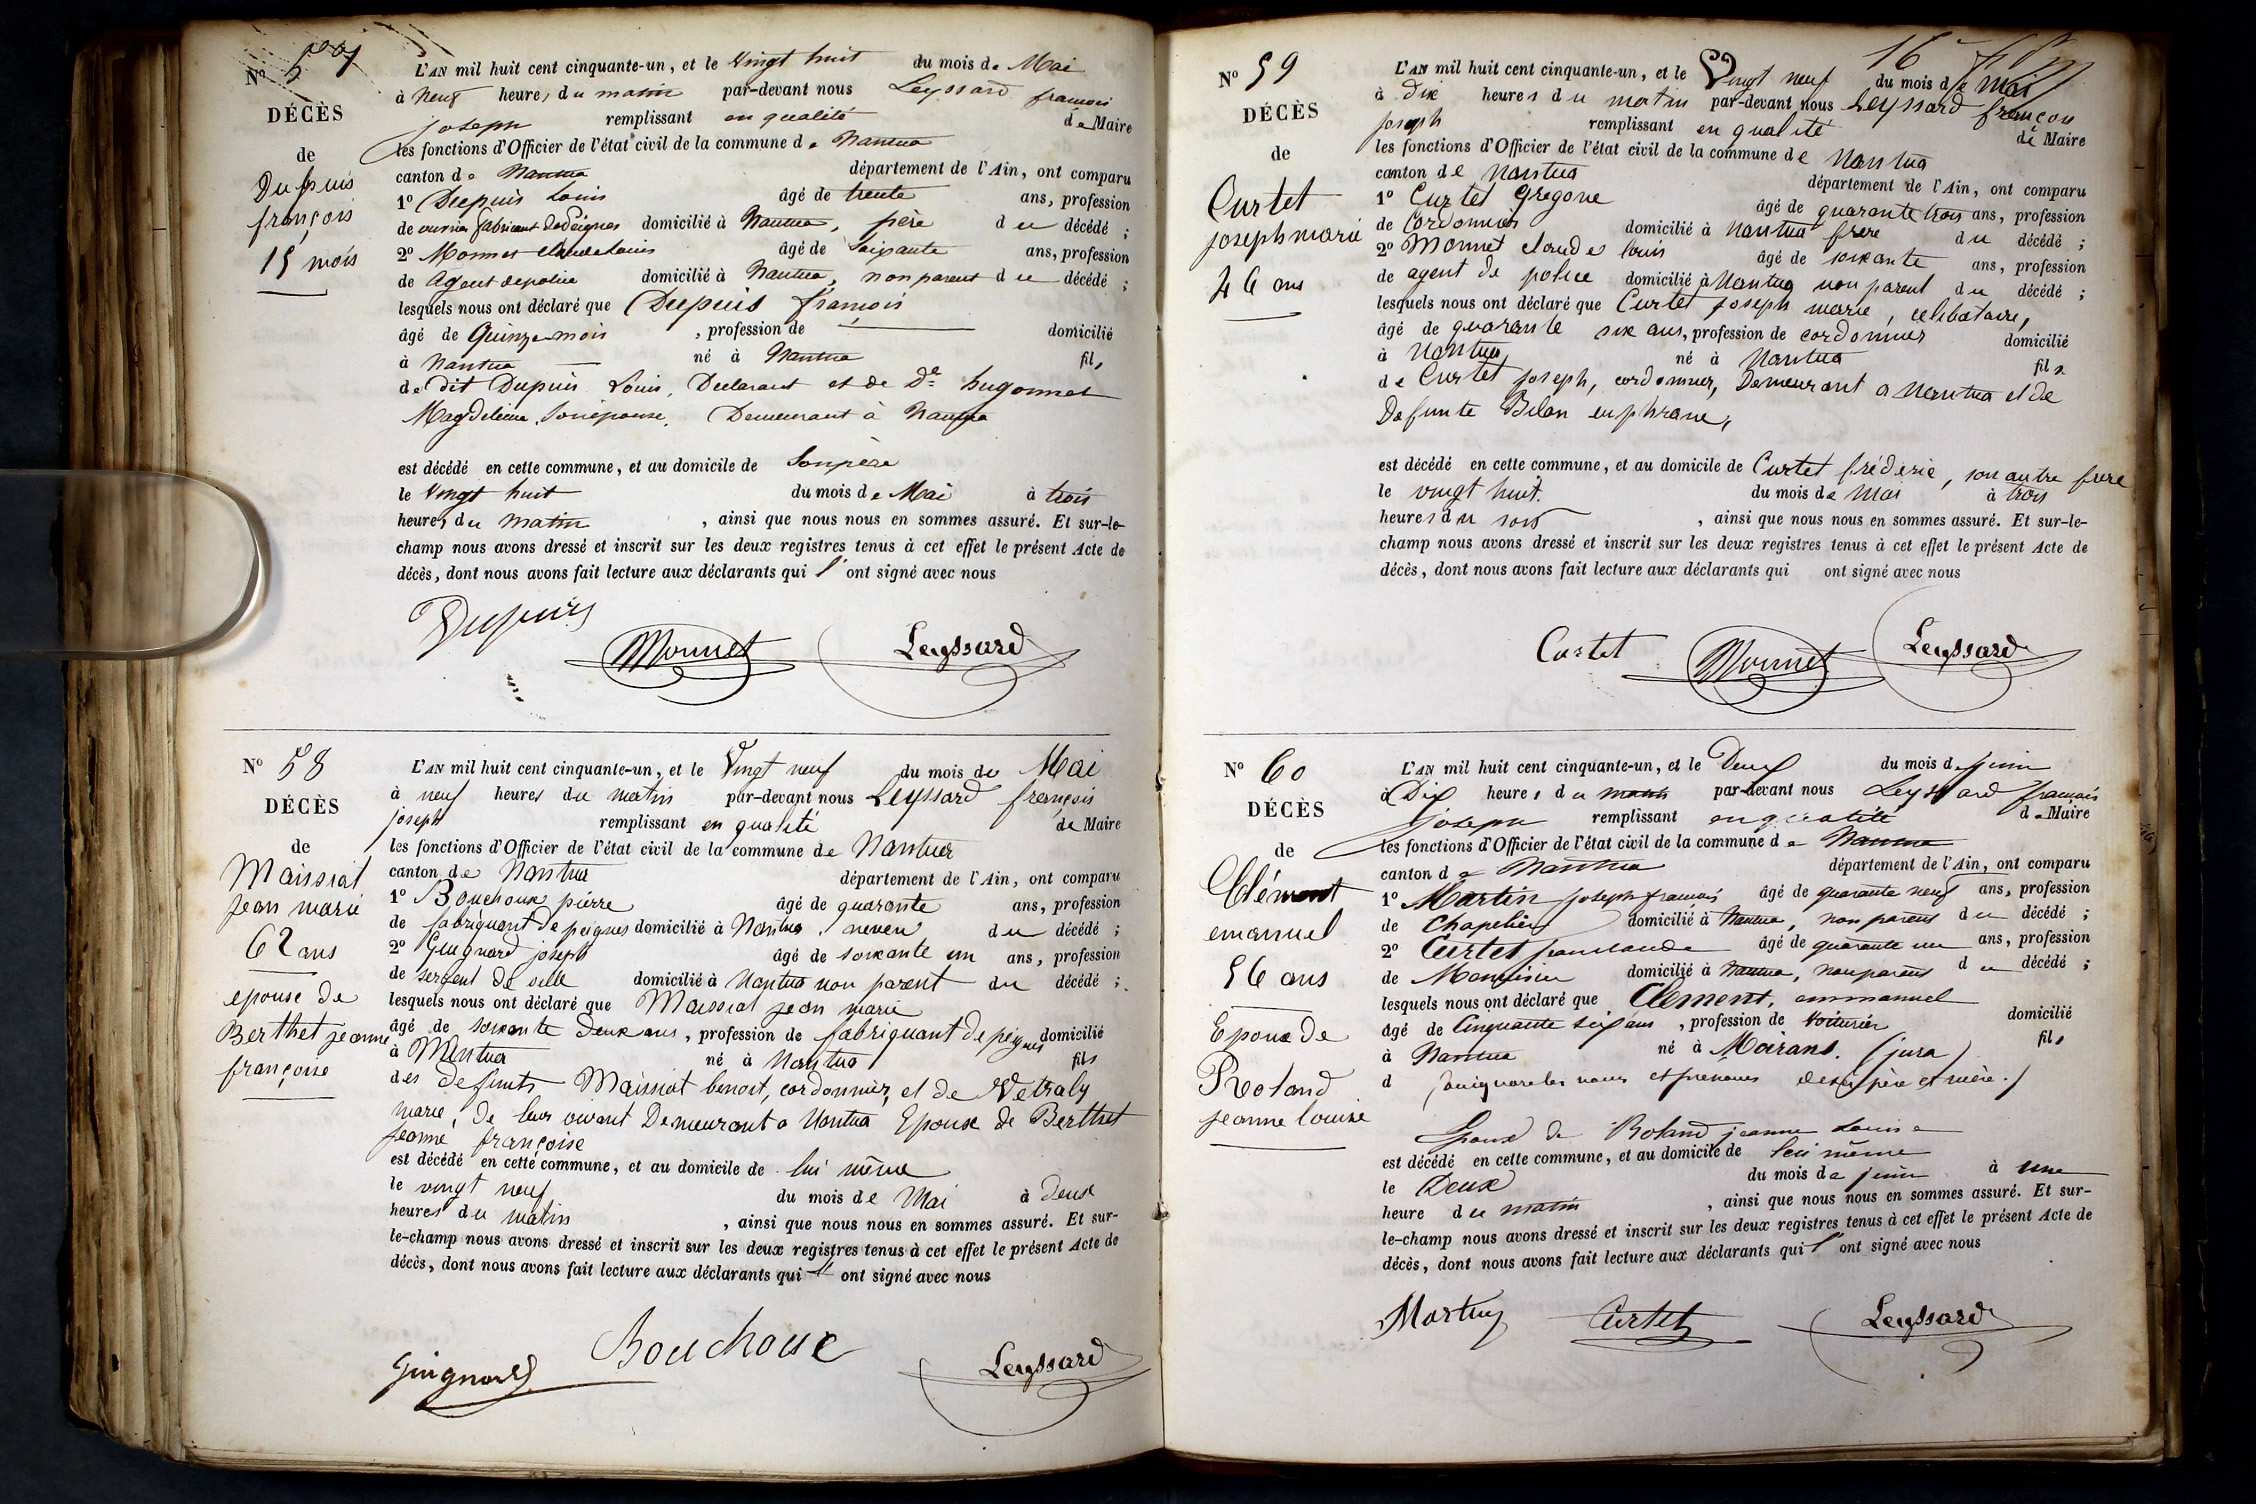 N° 57
DÉCÈS
de
Dupuis
françois
15 mois
L'AN mil huit cent cinquante-un, et le Vingt huit du mois de Mai
à Neuf heures du matin par-devant nous Leyssard françois
joseph remplissant en qualité de Maire
les fonctions d'Officier de l'état civil de la commune de Nantua
canton de Nantua département de l'Ain, ont comparu
1° Dupuis Louis âgé de trente ans, profession
de ouvrier fabricant de Peignes domicilié à Nantua, père du décédé ;
2° Monnet Claude Louis âgé de soixante ans, profession
de Agent de police domicilié à Nantua, non parent du décédé ;
lesquels nous ont déclaré que Dupuis françois
âgé de Quinze mois, profession de domicilié
à Nantua né à Nantua fils
de dit Dupuis Louis, Declarant et de De hugonnet
Magdeleine, son épouse, Demeurant à Nantua
est décédé en cette commune, et au domicile de Son père
le Vingt huit du mois de Mai à trois
heures du Matin, ainsi que nous nous en sommes assuré. Et sur-le-
champ nous avons dressé et inscrit sur les deux registres tenus à cet effet le présent Acte de
décès, dont nous avons fait lecture aux déclarants qui l' ont signé avec nous
Dupuis
Monnet
Leyssard
N° 58
DÉCÈS
de
Maissiat
Jean marie
62 ans
epouse de
Berthet jeanne
françoise
L'AN mil huit cent cinquante-un, et le Vingt neuf du mois de Mai
à neuf heures du matin par-devant nous Leyssard françois
joseph remplissant en qualité de Maire
les fonctions d'Officier de l'état civil de la commune de Nantua
canton de Nantua département de l'Ain, ont comparu
1° Bouchoux pierre âgé de quarante ans, profession
de fabriquant de peignes domicilié à Nantua, neveu du décédé ;
2° Guignard joseph âgé de soixante un ans, profession
de sergent de ville domicilié à Nantua non parent du décédé ;
lesquels nous ont déclaré que Maissiat jean marie
âgé de soixante Deux ans, profession de fabriquant de peignes domicilié
à Nantua né à Nantua fils
des defunts Maissiat benoit, cordonnier, et de Vetraly
marie, de leur vivant Demeurant a Nantua Epouse de Berthet
jeanne françoise
est décédé en cette commune, et au domicile de lui même
le vingt neuf du mois de Mai à deux
heures du matin, ainsi que nous nous en sommes assuré. Et sur-
le-champ nous avons dressé et inscrit sur les deux registres tenus à cet effet le présent Acte de
décès, dont nous avons fait lecture aux déclarants qui ont signé avec nous
Guignard
Bouchoux
Leyssard
16
N° 59
DÉCÈS
de
Curtet
joseph marie
46 ans
L'AN mil huit cent cinquante-un, et le Vingt neuf du mois de mai
à dix heures du matin par-devant nous Leyssard françois
joseph remplissant en qualité de Maire
les fonctions d'Officier de l'état civil de la commune de Nantua
canton de Nantua département de l'Ain, ont comparu
1° Curtet Gregoire âgé de quarante trois ans, profession
de Cordonnier domicilié à Nantua frere du décédé ;
2° Monnet claude louis âgé de soixante ans, profession
de agent de police domicilié à Nantua non parent du décédé ;
lesquels nous ont déclaré que Curtet joseph marie, celibataire,
âgé de quarante six ans, profession de cordonnier domicilié
à Nantua né à Nantua fils
de Curtet joseph, cordonnier, Demeurant a Nantua et de
Defunte Belan euphrasie,
est décédé en cette commune, et au domicile de Curtet fréderic, son autre frere
le vingt huit. du mois de Mai à trois
heures du soir, ainsi que nous nous en sommes assuré. Et sur-le-
champ nous avons dressé et inscrit sur les deux registres tenus à cet effet le présent Acte de
décès, dont nous avons fait lecture aux déclarants qui ont signé avec nous
Curtet
Monnet
Leyssard
N° 60
DÉCÈS
de
Clément
emanuel
56 ans
Epoux de
Roland
jeanne louise
L'AN mil huit cent cinquante-un, et le Deux du mois de juin
à Dix heures du matin par-devant nous Leyssard françois
joseph remplissant en qualité de Maire
les fonctions d'Officier de l'état civil de la commune de Nantua
canton de Nantua département de l'Ain, ont comparu
1° Martin joseph françois âgé de quarante neuf ans, profession
de Chapelier domicilié à Nantua, non parent du décédé ;
2° Curtet âgé de quarante un ans, profession
de Menuisier domicilié à Nantua, non parent du décédé ;
lesquels nous ont déclaré que Clement, emmanuel
âgé de Cinquante six ans, profession de Voiturier domicilié
à Nantua né à Moirans. (jura) fils
d les noms et prenoms de ses père et mère. /
Epoux de Roland jeanne Louise
est décédé en cette commune, et au domicile de lui même
le Deux du mois de juin à une
heure du matin, ainsi que nous nous en sommes assuré. Et sur-
le-champ nous avons dressé et inscrit sur les deux registres tenus à cet effet le présent Acte de
décès, dont nous avons fait lecture aux déclarants qui l' ont signé avec nous
Martin
Curtet
Leyssard